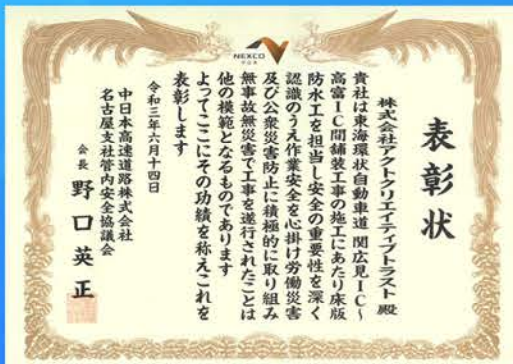 NEXCO
中日本
表彰状
株式会社アクトクリエイティブトラスト 殿
貴社は東海環状自動車道 関広見IC~
高富IC間舗装工事の施工にあたり床版
防水工を担当し安全の重要性を深く
認識のうえ作業安全を心掛け労働災害
及び公衆災害防止に積極的に取り組み
無事故無災害で工事を遂行されたことは
他の模範となるものであります
よってここにその功績を称えこれを
表彰します
令和三年六月十四日
中日本高速道路株式会社
名古屋支社管内安全協議会
会長 野口英正